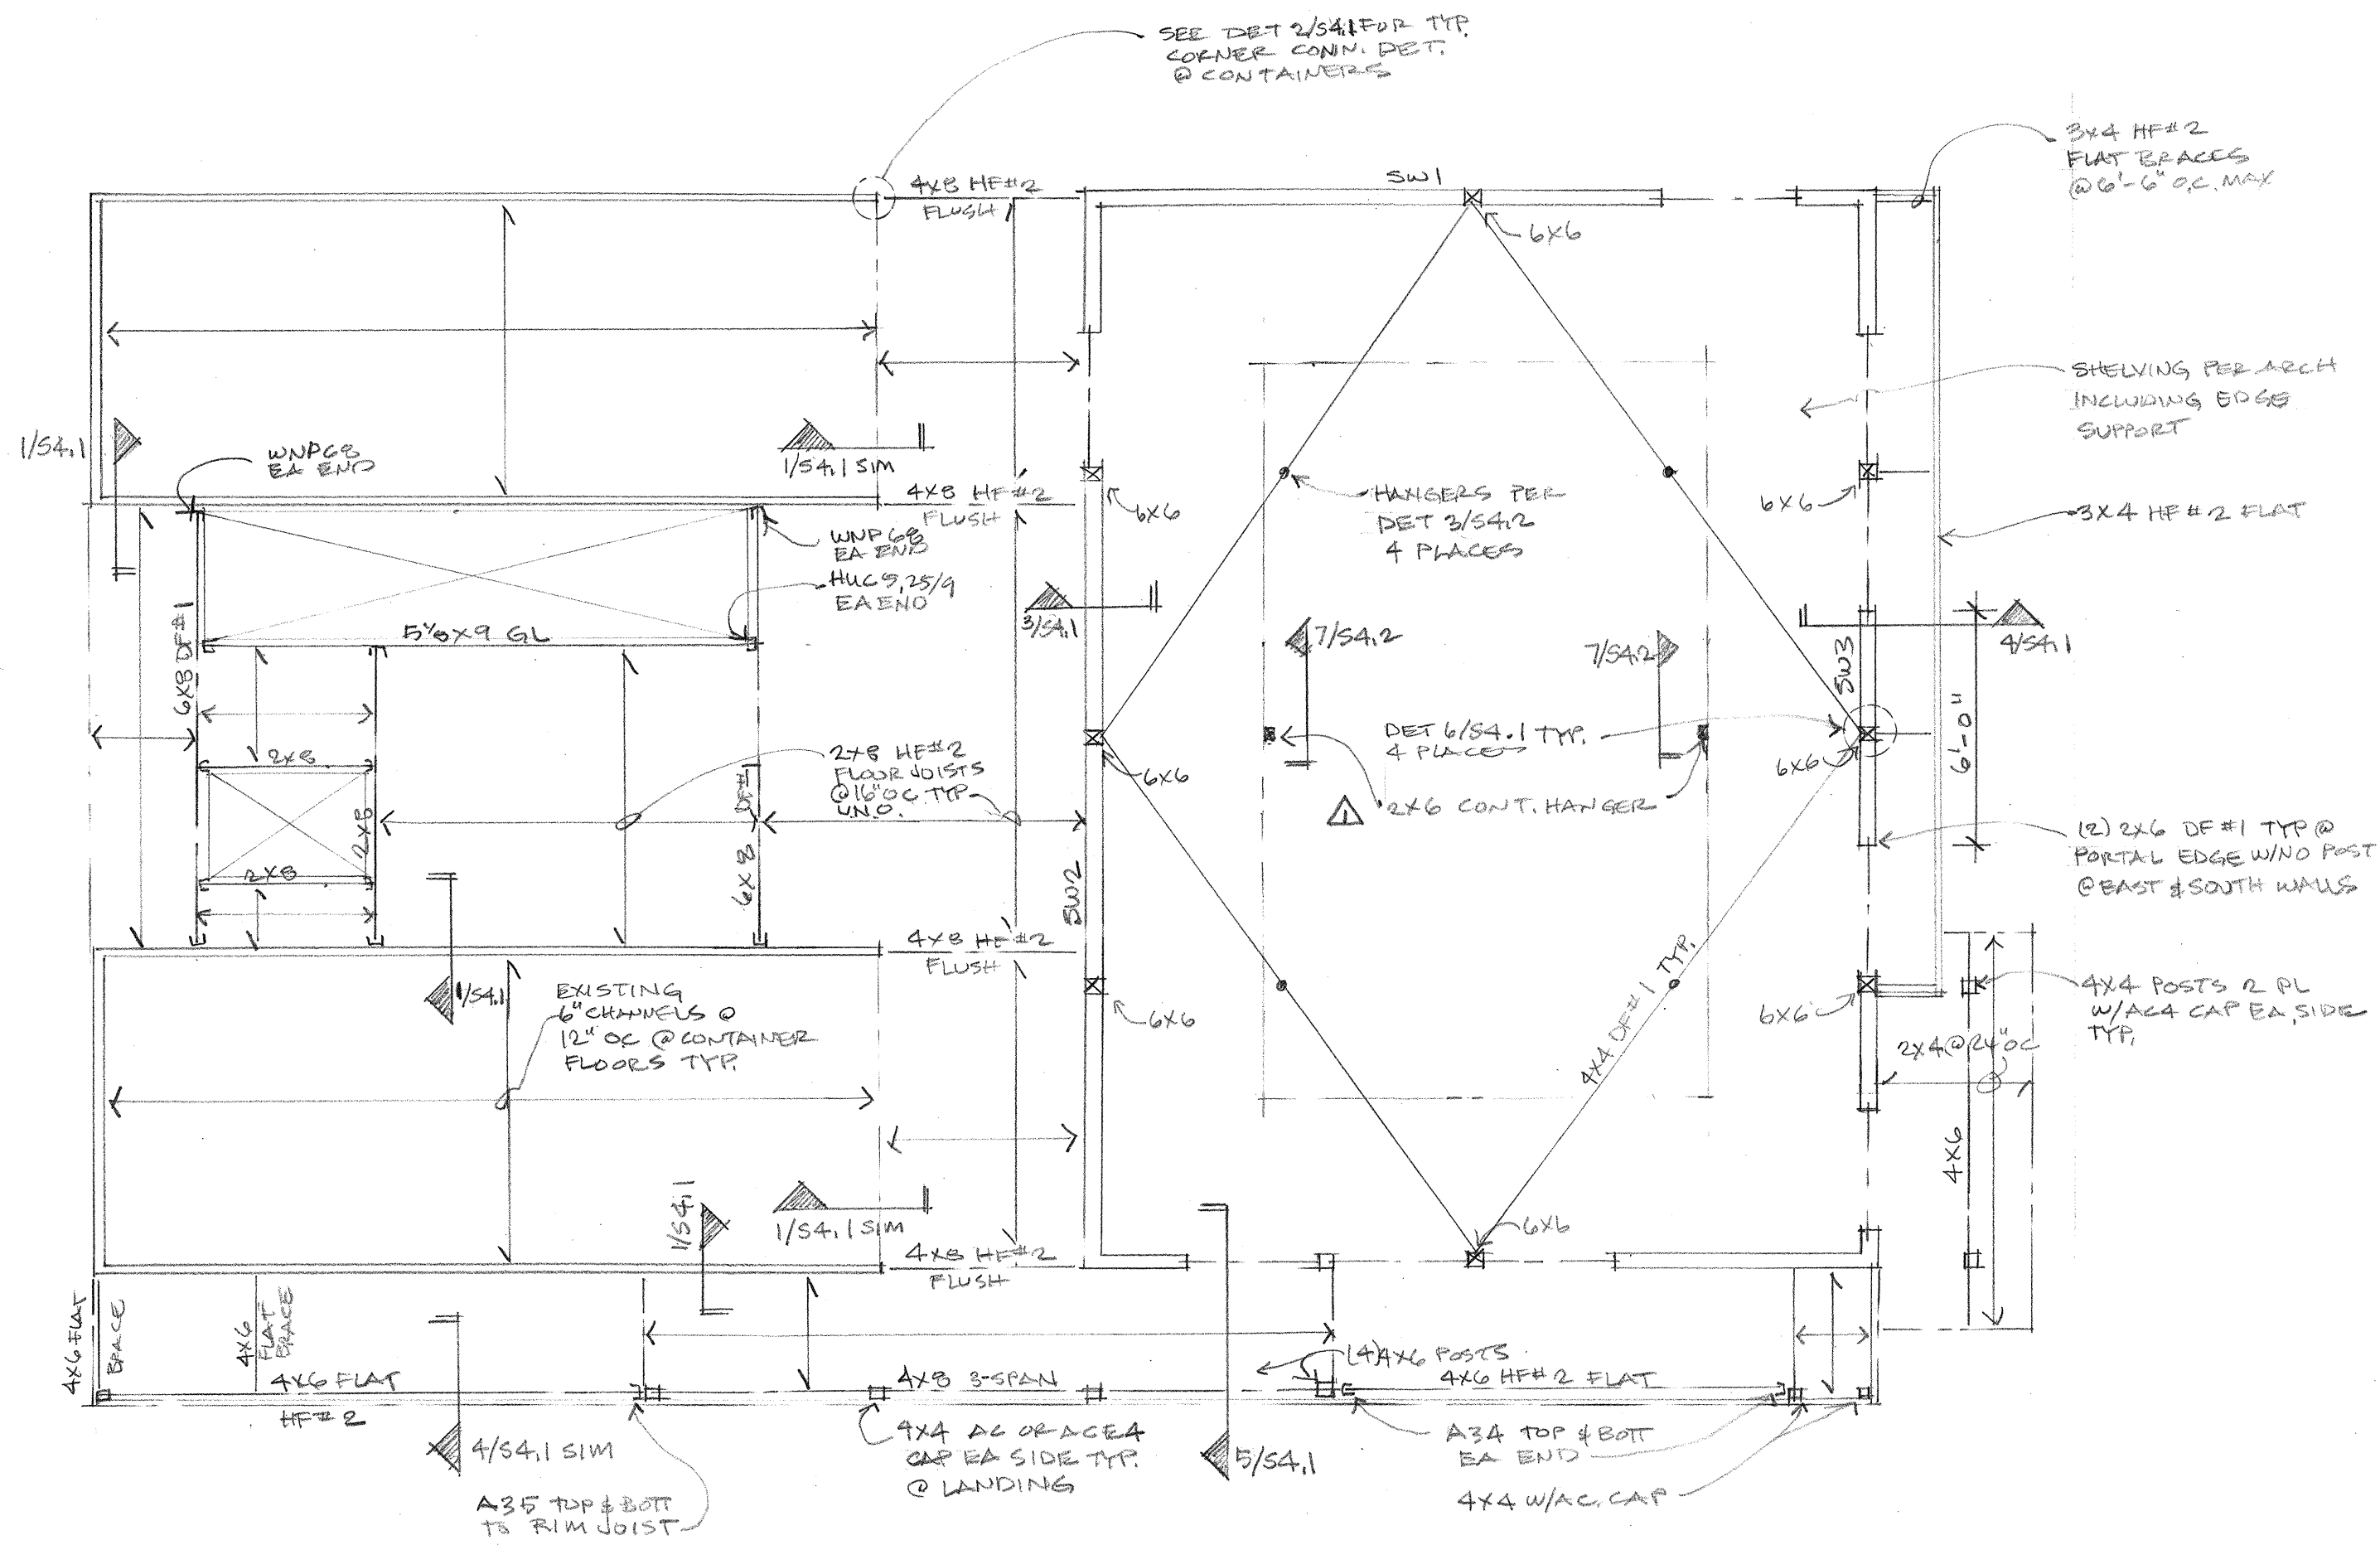 SEE DET 2/S4.1 FOR TYP.
CORNER CONN. DET.
@ CONTAINERS
3X4 HF#2
FLAT BRACES
@ 6'-6" O.C. MAX
4X8 HF#2
FLUSH
SW1
6X6
SHELVING PER ARCH
INCLUDING EDGE
SUPPORT
1/S4.1
WNP68
EA END
1/S4.1 SIM
4X8 HF#2
FLUSH
6X6
HANGERS PER
DET 3/S4.2
4 PLACES
6X6
3X4 HF#2 FLAT
WNP68
EA END
HUC5.25/9
EA END
3/S4.1
6X8 DF#1
5 1/8 X 9 GL
7/S4.2
7/S4.2
SW3
4/S4.1
6'-0"
2X8
2X8 HF#2
FLOOR JOISTS
@16"OC TYP
U.N.O.
6X6
DET 6/S4.1 TYP.
4 PLACES
6X6
1
2X6 CONT. HANGER
2X8
2X8
6X8 DF#1
SW2
(2) 2X6 DF#1 TYP @
PORTAL EDGE W/NO POST
@ EAST & SOUTH WALLS
4X8 HF#2
FLUSH
1/S4.1
EXISTING
6" CHANNELS @
12" OC @ CONTAINER
FLOORS TYP.
6X6
4X4 DF#1 TYP.
6X6
4X4 POSTS 2 PL
W/AC4 CAP EA. SIDE
TYP.
2X4 @ 24" OC
4X6
1/S4.1
1/S4.1 SIM
4X8 HF#2
FLUSH
6X6
4X6 FLAT
BRACE
4X6
FLAT
BRACE
4X6 FLAT
HF#2
4X8 3-SPAN
(4)4X6 POSTS
4X6 HF#2 FLAT
4/S4.1 SIM
4X4 AC OR ACE4
CAP EA SIDE TYP.
@ LANDING
5/S4.1
A34 TOP & BOTT
EA END
4X4 W/AC. CAP
A35 TOP & BOTT
TO RIM JOIST